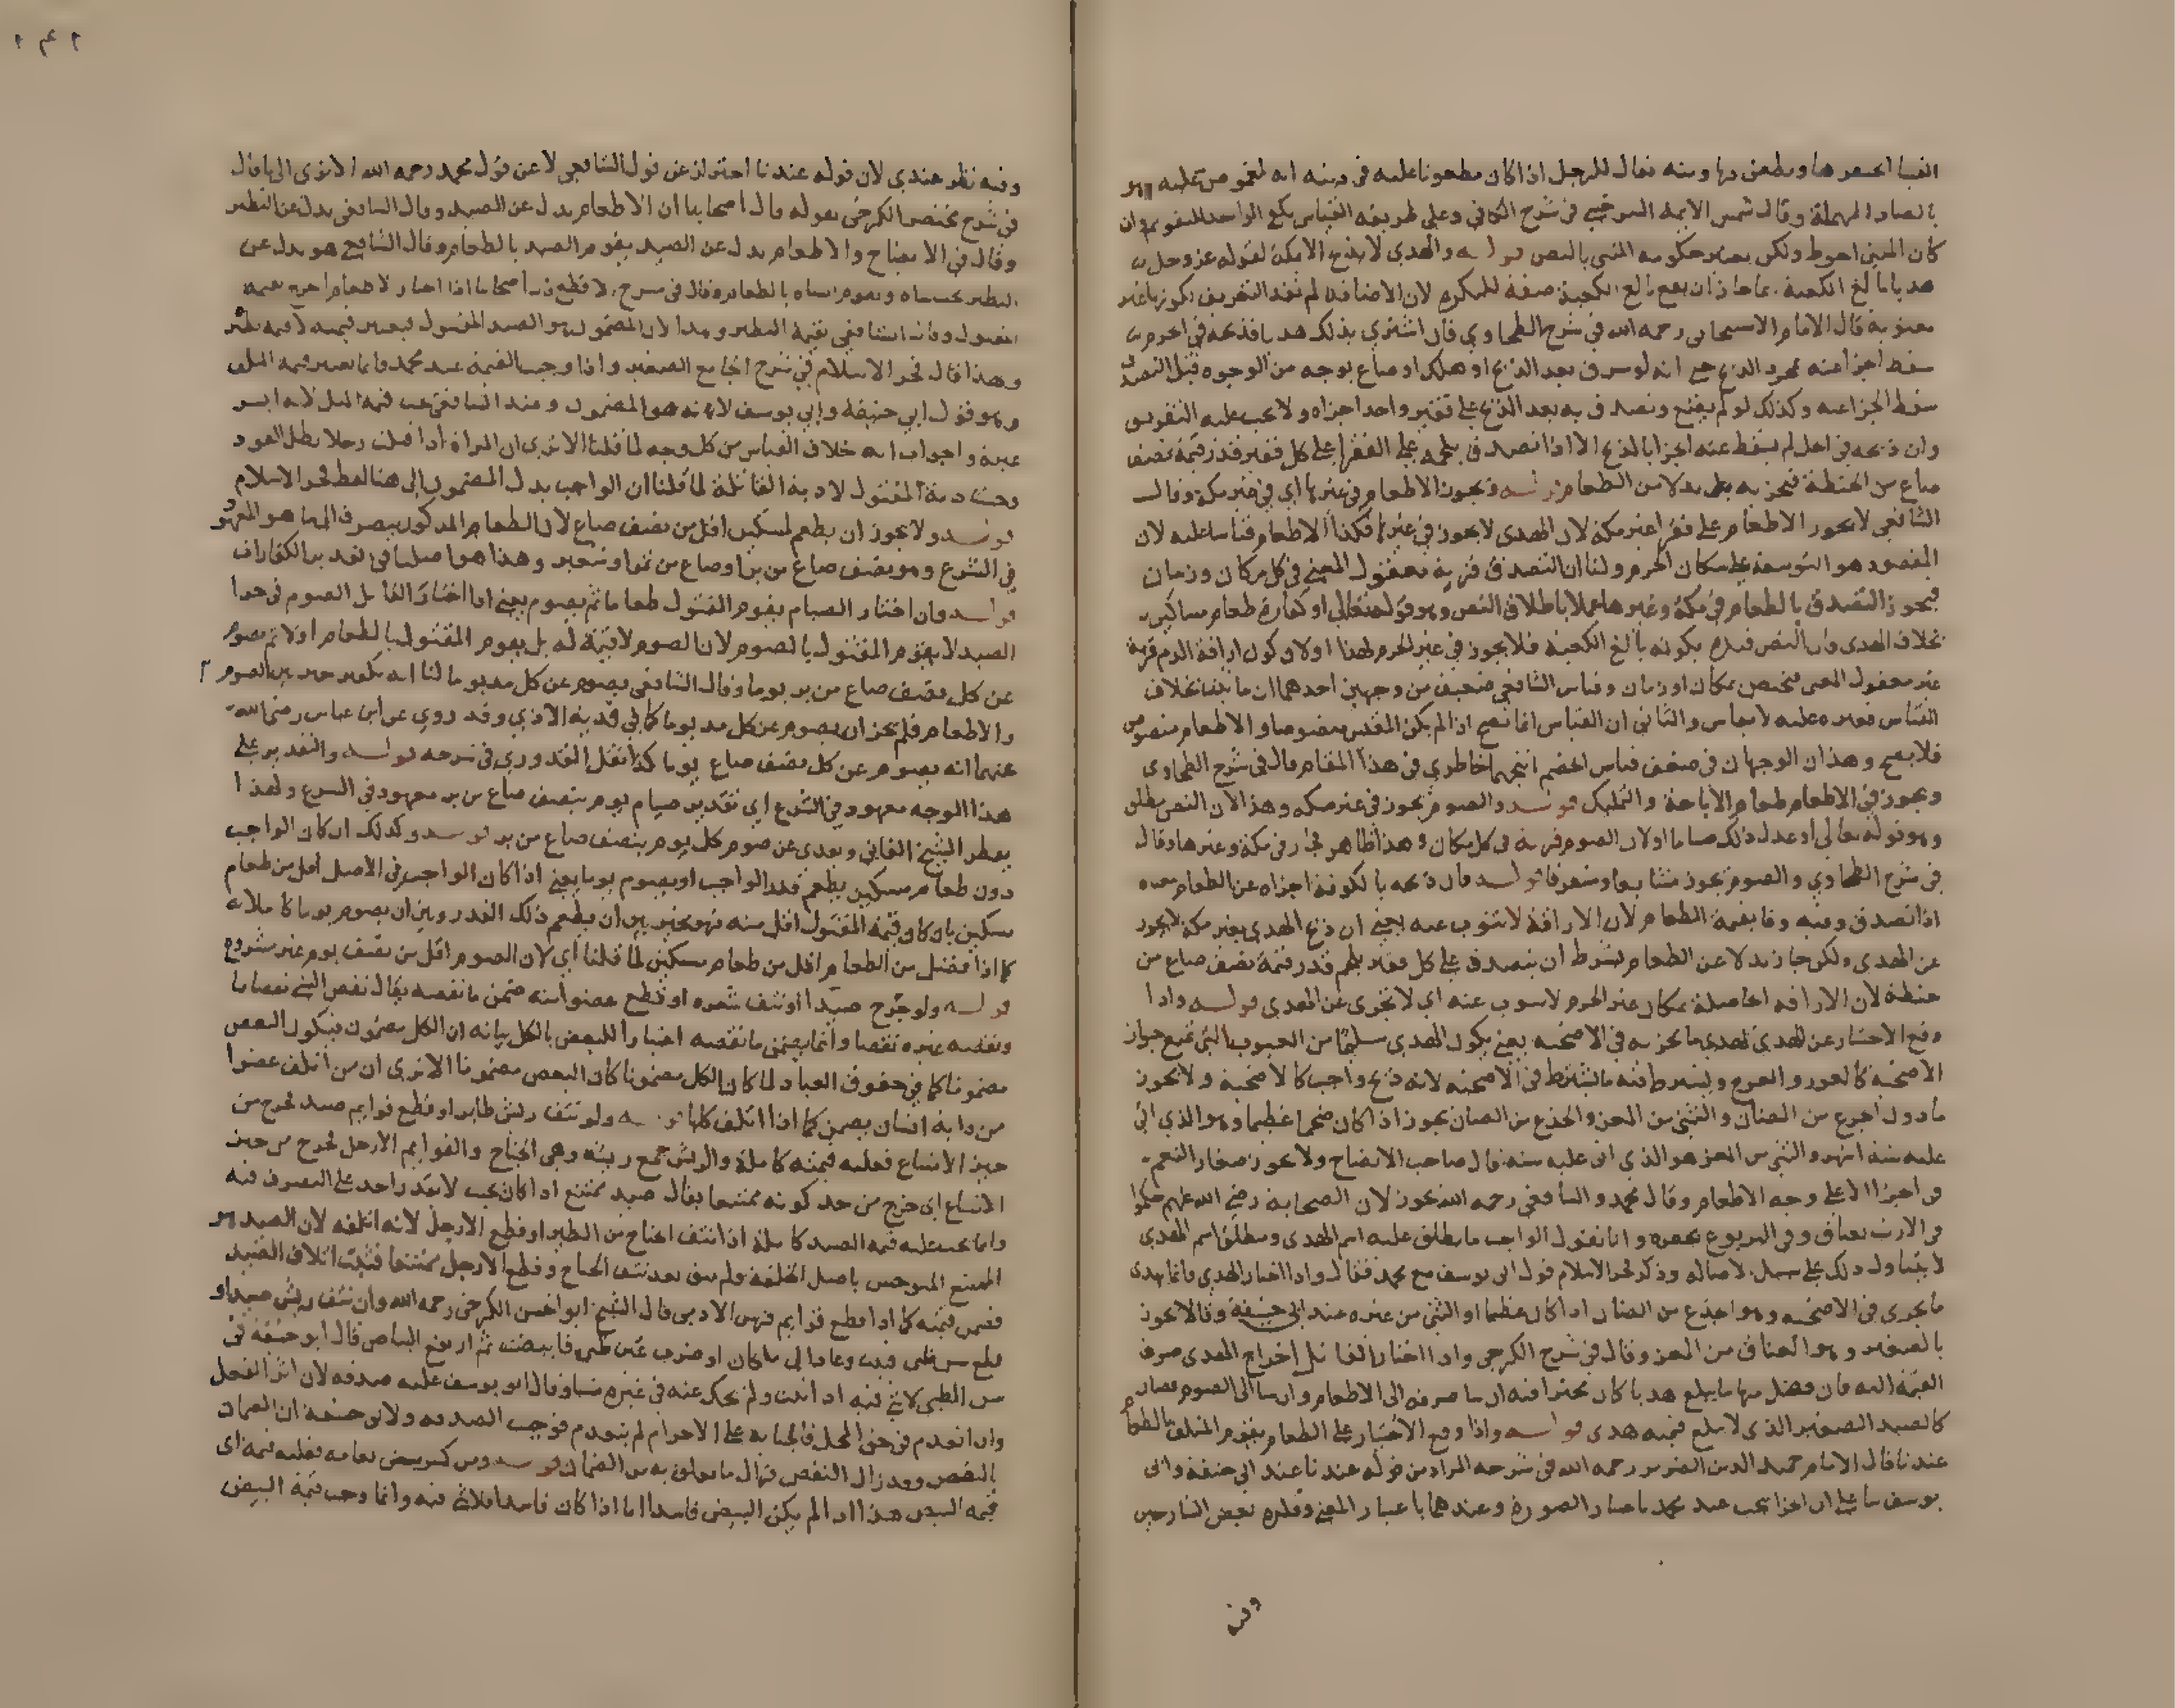 بالصاد المهملة وقال شمس الايمه السرخسي في شرح الكافي وعلى طريقه القياس يكفي الواحد للتقويم وان
كان المثنى احوط ولكن يعتبر حكومه المثنى بالنص قوله والهدي لا يذبح الا بمكة لقوله عز وجل
هديا بالغ الكعبة صفة للنكرة لان الاضافة لم تفد التعريف
معنويه قال الامام الاسبيجابي رحمه الله في شرح الطحاوي فان اشترى بذلك هديا فذبحه في الحرم
سقط الجزا عنه بمجرد الذبح حتى انه لو سرق بعد الذبح او هلك او ضاع بوجه من الوجوه قبل التصدق
سقط الجزا عنه وكذلك لو لم يضع وتصدق به بعد الذبح على فقير واحد اجزاه ولا يجب عليه التفريق
وان ذبحه في الحل لم يسقط عنه الجزا بالذبح الا اذا تصدق بلحمه على الفقرا على كل فقير قدر قيمة نصف
صاع من الحنطة فيجزيه بدلا من الطعام قوله ويجوز الاطعام في غيرها اي في غير مكة وقال
الشافعي لا يجوز الاطعام على فقرا غير مكة لان الهدى لا يجوز في غيرها فكذا الاطعام قياسا عليه لان
المقصود هو التوسعة على سكان الحرم ولنا ان التصدق قربة معقول المعنى في كل مكان وزمان
فيجوز التصدق بالطعام في مكة وغيرها عملا باطلاق النص وهو قوله تعالى او كفارة طعام مساكين
بخلاف الهدى فان النص قيده بكونه بالغ الكعبة فلا يجوز في غير الحرم لهذا اولان كون اراقة الدم قربة
غير معقول المعنى فيختص بمكان او زمان وقياس الشافعي ضعيف من وجهين احدهما ان ما ثبت بخلاف
القياس فغيره عليه لا يقاس والثاني ان القياس انما يصح اذا لم يكن المقيس منصوصا والاطعام منصوص
فلا يصح وهذان الوجهان في ضعف قياس الخصم انتجهما خاطري في هذا المقام قال في شرح الطحاوى
ويجوز في الاطعام طعام الاباحة والتمليك قوله والصوم يجوز في غير مكه وهذا لان النص مطلق
وهو قوله تعالى او عدل ذلك صياما اولان الصوم قربة في كل مكان وهذا ظاهر فجاز في مكة وغيرها وقال
في شرح الطحاوي والصوم يجوز متتابعا ومتفرقا قوله فان ذبحه بالكوفة اجزاه عن الطعام معناه
اذا تصدق وفيه وفا بقيمة الطعام لان الاراقة لا تنوب عنه يعني ان ذبح الهدى بغير مكة لا يجوز
عن الهدى ولكن جاز بدلا عن الطعام بشرط ان يتصدق على كل فقير بلحم قدر قيمة نصف صاع من
حنطة لان الاراقة الحاصلة بمكان غير الحرم لا تنوب عنه اي لا تجزى عن الهدى قوله واذا
وقع الاختيار عن الهدي يهدي ما يجزيه في الاضحيه يعني يكون الهدى سليما من العيوب التي تمنع جواز
الاضحية كالعور والعرج ويشترط فيه ما يشترط في الاضحية لانه ذبح واجب كالاضحية ولا يجوز
ما دون الجذع من الضان والثني من المعز والجذع من الضان يجوز اذا كان ضخما عظيما وهو الذي اتى
عليه ستة اشهر والثني من المعز هو الذي اتى عليه سنه قال صاحب الايضاح ولا يجوز صغار النعم
في الجزا الا على وجه الاطعام وقال محمد والشافعي رحمه الله يجوز لان الصحابة رضي الله عنهم حكموا
في الارنب بعناق وفي اليربوع بجفره وانا نقول الواجب ما يطلق عليه اسم الهدى ومطلق اسم الهدى
لا يتناول ذلك على سبيل الاصاله وذكر فخر الاسلام قول ابي يوسف مع محمد فقال واذا اختار الهدي فانما يهدى
ما يجزى في الاضحيه وهو الجذع من الضان اذا كان عظيما او الثني من غيره عند ابي حنيفة وقالا يجوز
بالصغير وهو العناق من المعز وقال في شرح الكرخي واذا اختار القاتل اخراج الهدى صرف
القيمة اليه فان فضل منها ما لا يبلغ هديا كان مخيرا فيه ان شا صرفه الى الاطعام وان شا الى الصوم فصار
كالصيد الصغير الذي لا يبلغ قيمته هدى قوله واذا وقع الاختيار على الطعام يقوم المتلف بالطعام
عندنا قال الامام حميد الدين الضرير رحمه الله في شرحه المراد من قوله عندنا عند ابي حنيفة وابي
يوسف بنا على ان الجزا يجب عند محمد باعتبار الصورة وعندهما باعتبار المعنى وقلده بعض الشارحين
وفيه
وفيه نظر عندي لان قوله عندنا احتراز عن قول الشافعي لا عن قول محمد رحمه الله الا ترى الى ما قال
في شرح مختصر الكرخي بقوله قال اصحابنا ان الاطعام بدل عن الصيد وقال الشافعي بدل عن النظير
وقال في الايضاح والاطعام بدل عن الصيد يقوم الصيد بالطعام وقال الشافعي هو بدل عن
المقتول وقال الشافعي بقيمة النظير وهذا لان المضمون هو الصيد المقتول فيعتبر قيمته لا قيمة نظيره
وهذا قال فخر الاسلام في شرح الجامع الصغير واذا وجب القيمة عند محمد فانما يعتبر قيمة المثل
وهو قول ابي حنيفة وابي يوسف لانه هو المضمون وعند الشافعي يجب قيمة المثل لانه ليس
وجبت دية المقتول لا دية القاتلة لما قلنا ان الواجب بدل المضمون الى هنا لفظ فخر الاسلام
قوله ولا يجوز ان يطعم لمسكين اقل من نصف صاع لان الطعام المذكور ينصرف الى ما هو المعهود
في الشرع وهو نصف صاع من بر او صاع من تمر او شعير وهذا هو اصلنا في تقدير الكفارات
قوله وان اختار الصيام يقوم المقتول طعاما ثم يصوم يعني اذا اختار القاتل الصوم في جزا
الصيد لا يقوم المقتول بالصوم لان الصوم لا قيمة له بل يقوم المقتول بالطعام اولا ثم يصوم
عن كل نصف صاع من بر يوما وقال الشافعي يصوم عن كل مد يوما لنا انه مخير بين الصوم
والاطعام فلم يجز ان يصوم عن كل مد يوما كما في فدية الاذي وقد روي عن ابن عباس رضي الله
عنهما انه يصوم عن كل نصف صاع يوما كذا نقل القدوري في شرحه قوله والتقدير على
هذا الوجه معهود في الشرع اي تقدير صيام يوم بنصف صاع من بر معهود في الشرع ولهذا
يفطر الشيخ الفاني ويفدي عن صوم كل يوم بنصف صاع من بر قوله وكذلك ان كان الواجب
دون طعام مسكين يطعم قدر الواجب او يصوم يوما يعني اذا كان الواجب في الاصل اقل من طعام
مسكين بان كان قيمة المقتول اقل منه فهو مخير بين ان يطعم ذلك القدر وبين ان يصوم يوما كاملا
كما اذا فضل من الطعام اقل من طعام مسكين لما قلنا اي لان الصوم اقل من نصف يوم غير مشروع
قوله ولو جرح صيدا او نتف شعره او قطع عضوا منه ضمن ما نقصه يقال نقص الشي نقصانا
ونقصه غيره نقصا وانما يضمن ما نقصه اعتبارا للبعض بالكل بيانه ان الكل مضمون فيكون البعض
مضمونا كما في حقوق العباد لما كان الكل مضمونا كان البعض مضمونا الا ترى ان من اتلف عضوا
من دابة انسان يضمن كما اذا اتلف كلها قوله ولو نتف ريش طاير او قطع قوايم صيد فخرج من
حيز الامتناع فعليه قيمته كاملة والريش جمع ريشه وهي الجناح والقوايم الارجل فخرج من حيز
الامتناع اي خرج من حد كونه ممتنعا يقال صيد ممتنع اذا كان بحيث لا يقدر احد على التصرف فيه
وانما يجب عليه قيمة الصيد كاملة اذا نتف الجناح من الطير او قطع الارجل لانه اتلفه لان الصيد هو
الممتنع المتوحش باصل الخلقة ولم يبق بعد نتف الجناح وقطع الارجل ممتنعا فثبت اتلاف الصيد
فضمن قيمته كما اذا قطع قوايم فرس الادمي قال الشيخ ابو الحسن الكرخي رحمه الله وان نتف ريش صيد او
قلع سن ظبي فنبت وعاد الى ما كان او ضرب عين ظبي فابيضت ثم ارتفع البياض قال ابو حنيفة في
سن الظبي لا شي فيه اذا نبت ولم يحك عنه في غيره شيا وقال ابو يوسف عليه صدقه لان اثر الفعل
وان انعدم في حق المحل فالجناية على الاحرام لم ينعدم فوجب الصدقه ولابي حنيفة ان الضمان
بالنقص وقد زال النقص فزال ما تعلق به من الضمان قوله ومن كسر بيض نعامه فعليه قيمته اي
قيمة البيض هذا اذا لم يكن البيض فاسدا اما اذا كان فاسدا فلا شي فيه وانما وجب قيمة البيض